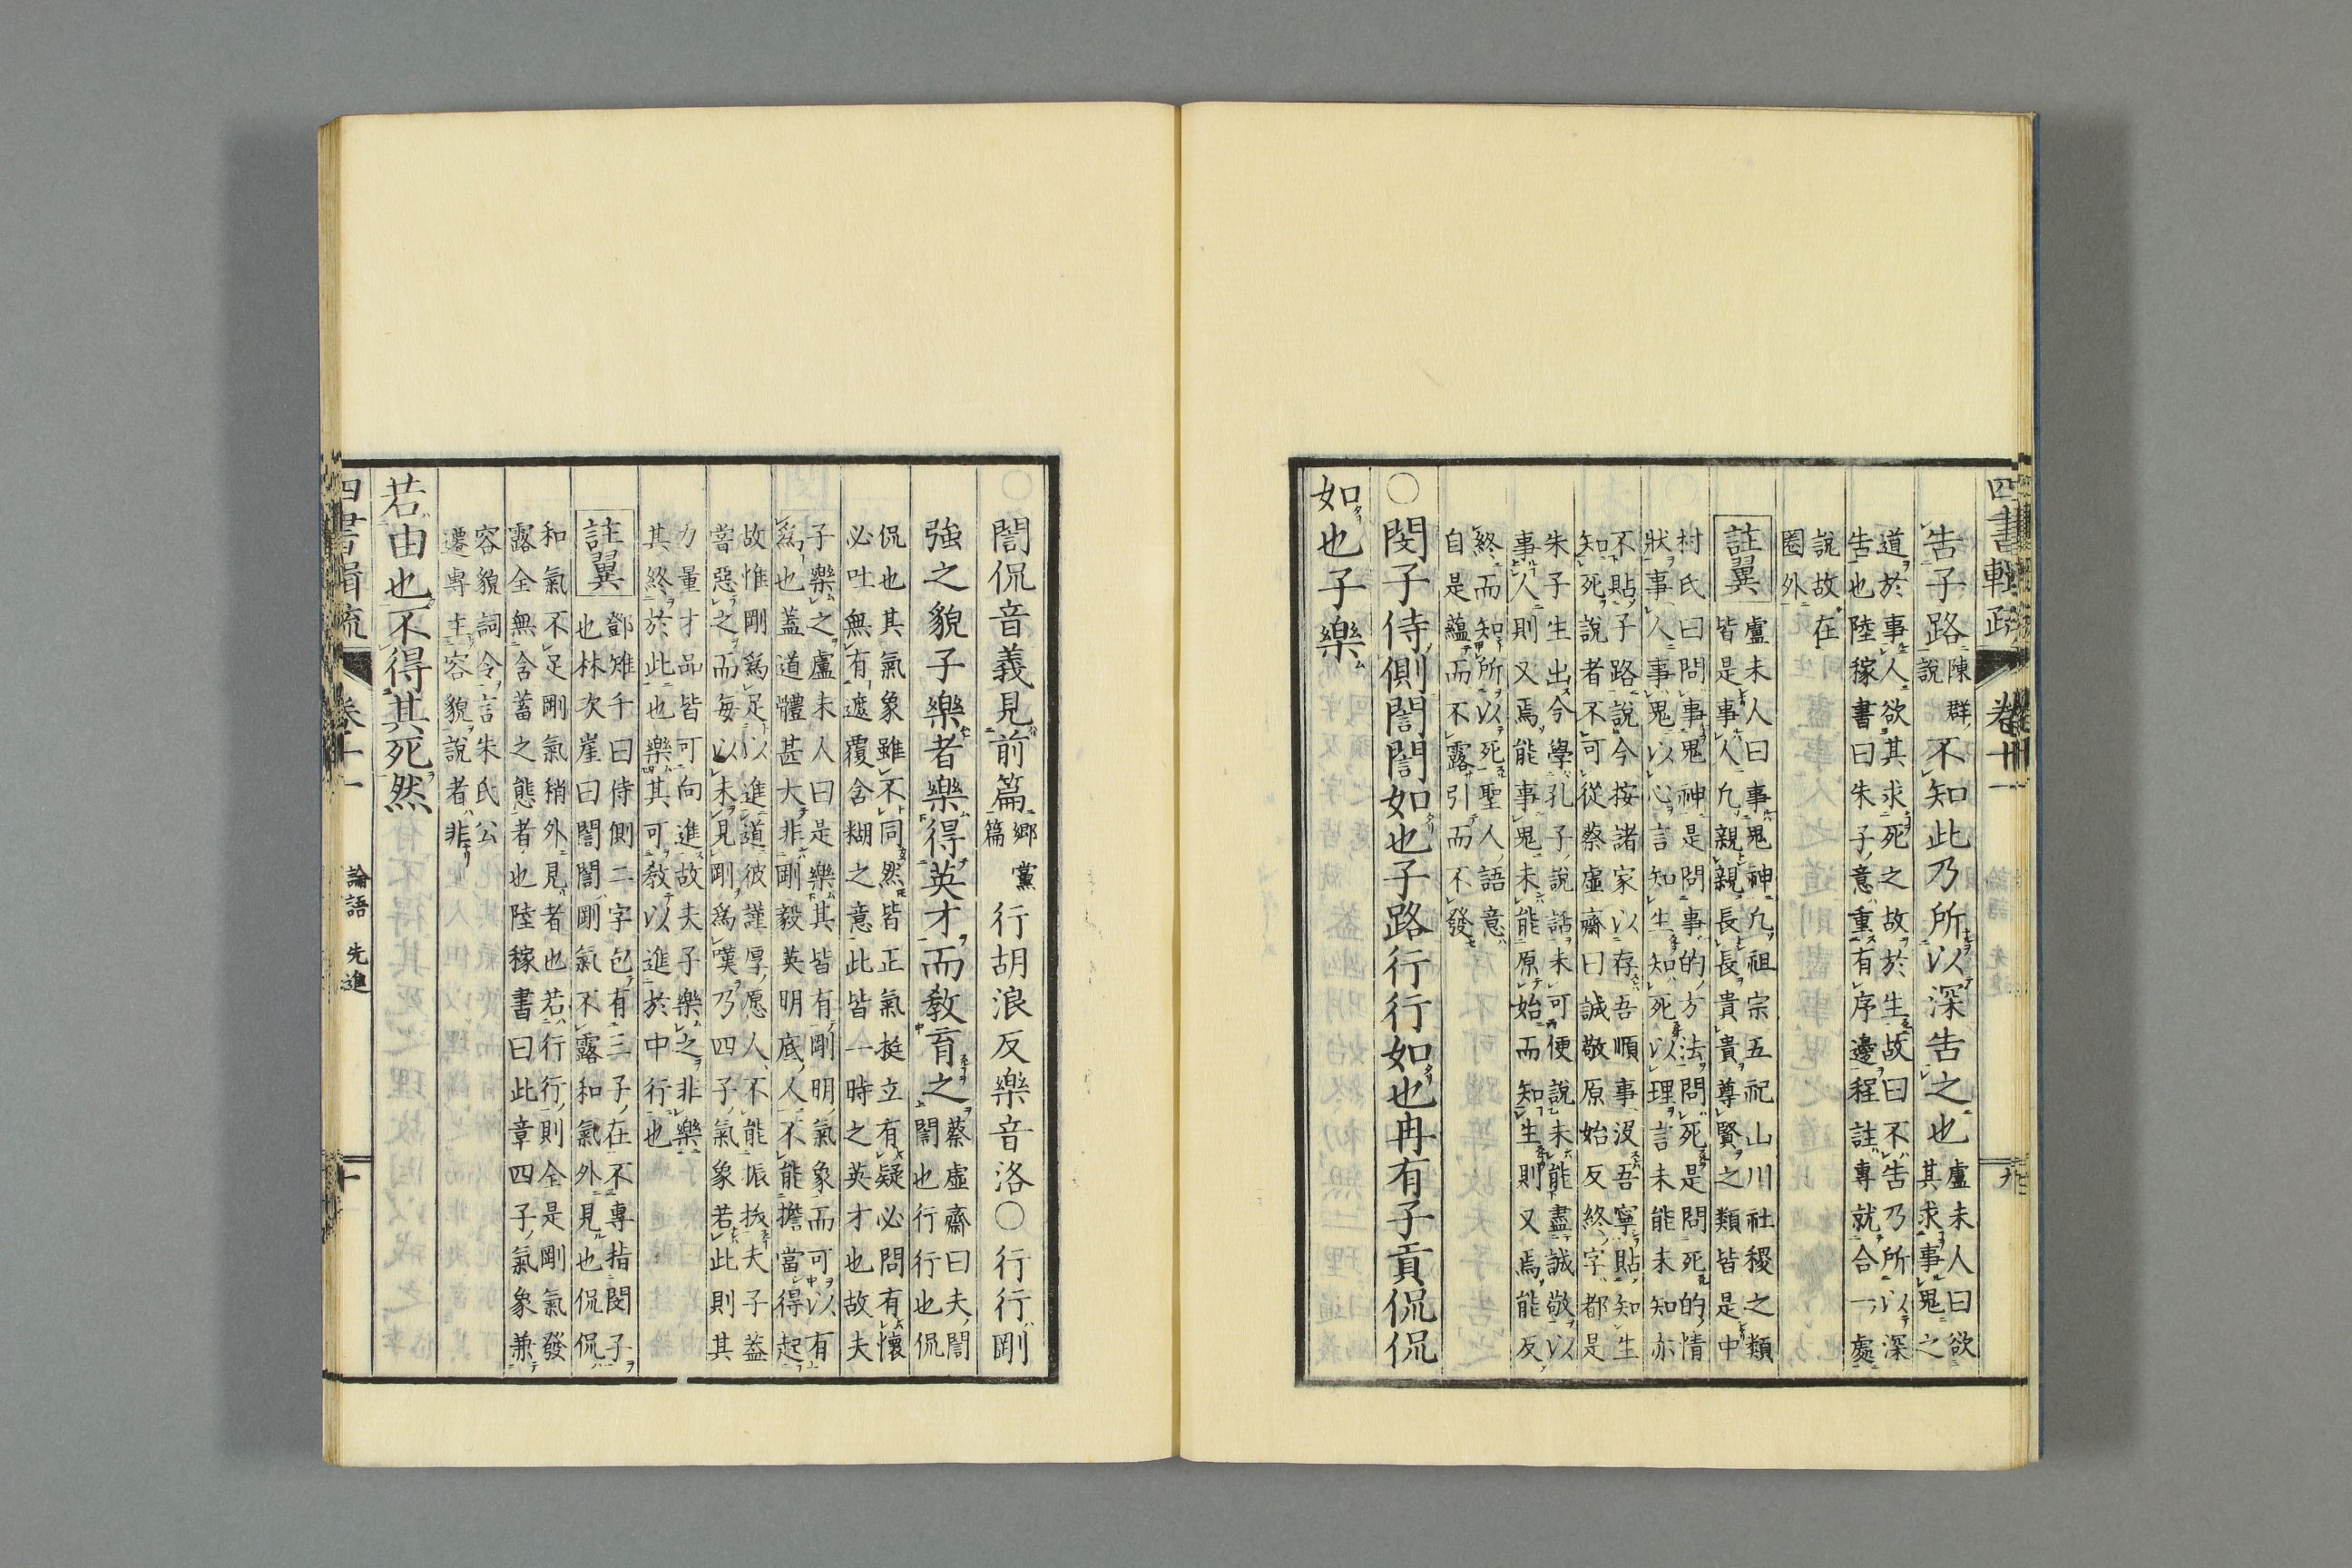 四書輯疏 卷十一 九
告子路陳群說不知此乃所以深告之也盧未人曰欲其求事鬼之
道於事人欲其求死之故於生故曰不告乃所以深
告也陸稼書曰朱子意重有序邊程註專就合一處
說故在
圈外
註翼 盧未人曰事鬼神凡祖宗五祀山川社稷之類
皆是事人凡親親長長貴貴尊賢之類皆是中
村氏曰問事鬼神是問事的方法問死是問死的情
狀事人事鬼以心言知生知死以理言未能未知亦
不貼子路說今按諸家以存吾順事沒吾寧貼知生
知死說者不可從蔡虛齋曰誠敬原始反終字都是
朱子生出今學孔子說話未可便說未能盡誠敬以
事人則又焉能事鬼未能原始而知生則又焉能反
終而知所以死聖人語意
自是蘊而不露引而不發
○閔子侍側誾誾如也子路行行如也冉有子貢侃侃
如也子樂
○誾侃音義見前篇鄉黨篇行胡浪反樂音洛○行行剛
強之貌子樂者樂得英才而教育之蔡虛齋曰夫誾誾也行行也侃
侃也其氣象雖不同然皆正氣挺立有疑必問有懷
必吐無有遮覆含糊之意此皆一時之英才也故夫
子樂之盧未人曰是樂其皆有剛明氣象而可以有
爲也蓋道體甚大非剛毅英明底人不能擔當得起
故惟剛爲足以進道彼謹厚愿人不能振拔夫子蓋
嘗惡之而每以未見剛爲嘆乃四子氣象若此則其
力量才品皆可向進故夫子樂之非樂
其終於此也樂其可教以進於中行也
註翼 鄧雉千曰侍側二字包有三子在不專指閔子
也林次崖曰誾誾剛氣不露和氣外見也侃侃
和氣不足剛氣稍外見者也若行行則全是剛氣發
露全無含蓄之態者也陸稼書曰此章四子氣象兼
容貌詞令言朱氏公
遷專主容貌說者非
若由也不得其死然
四書輯疏 卷十一 論語 先進 十